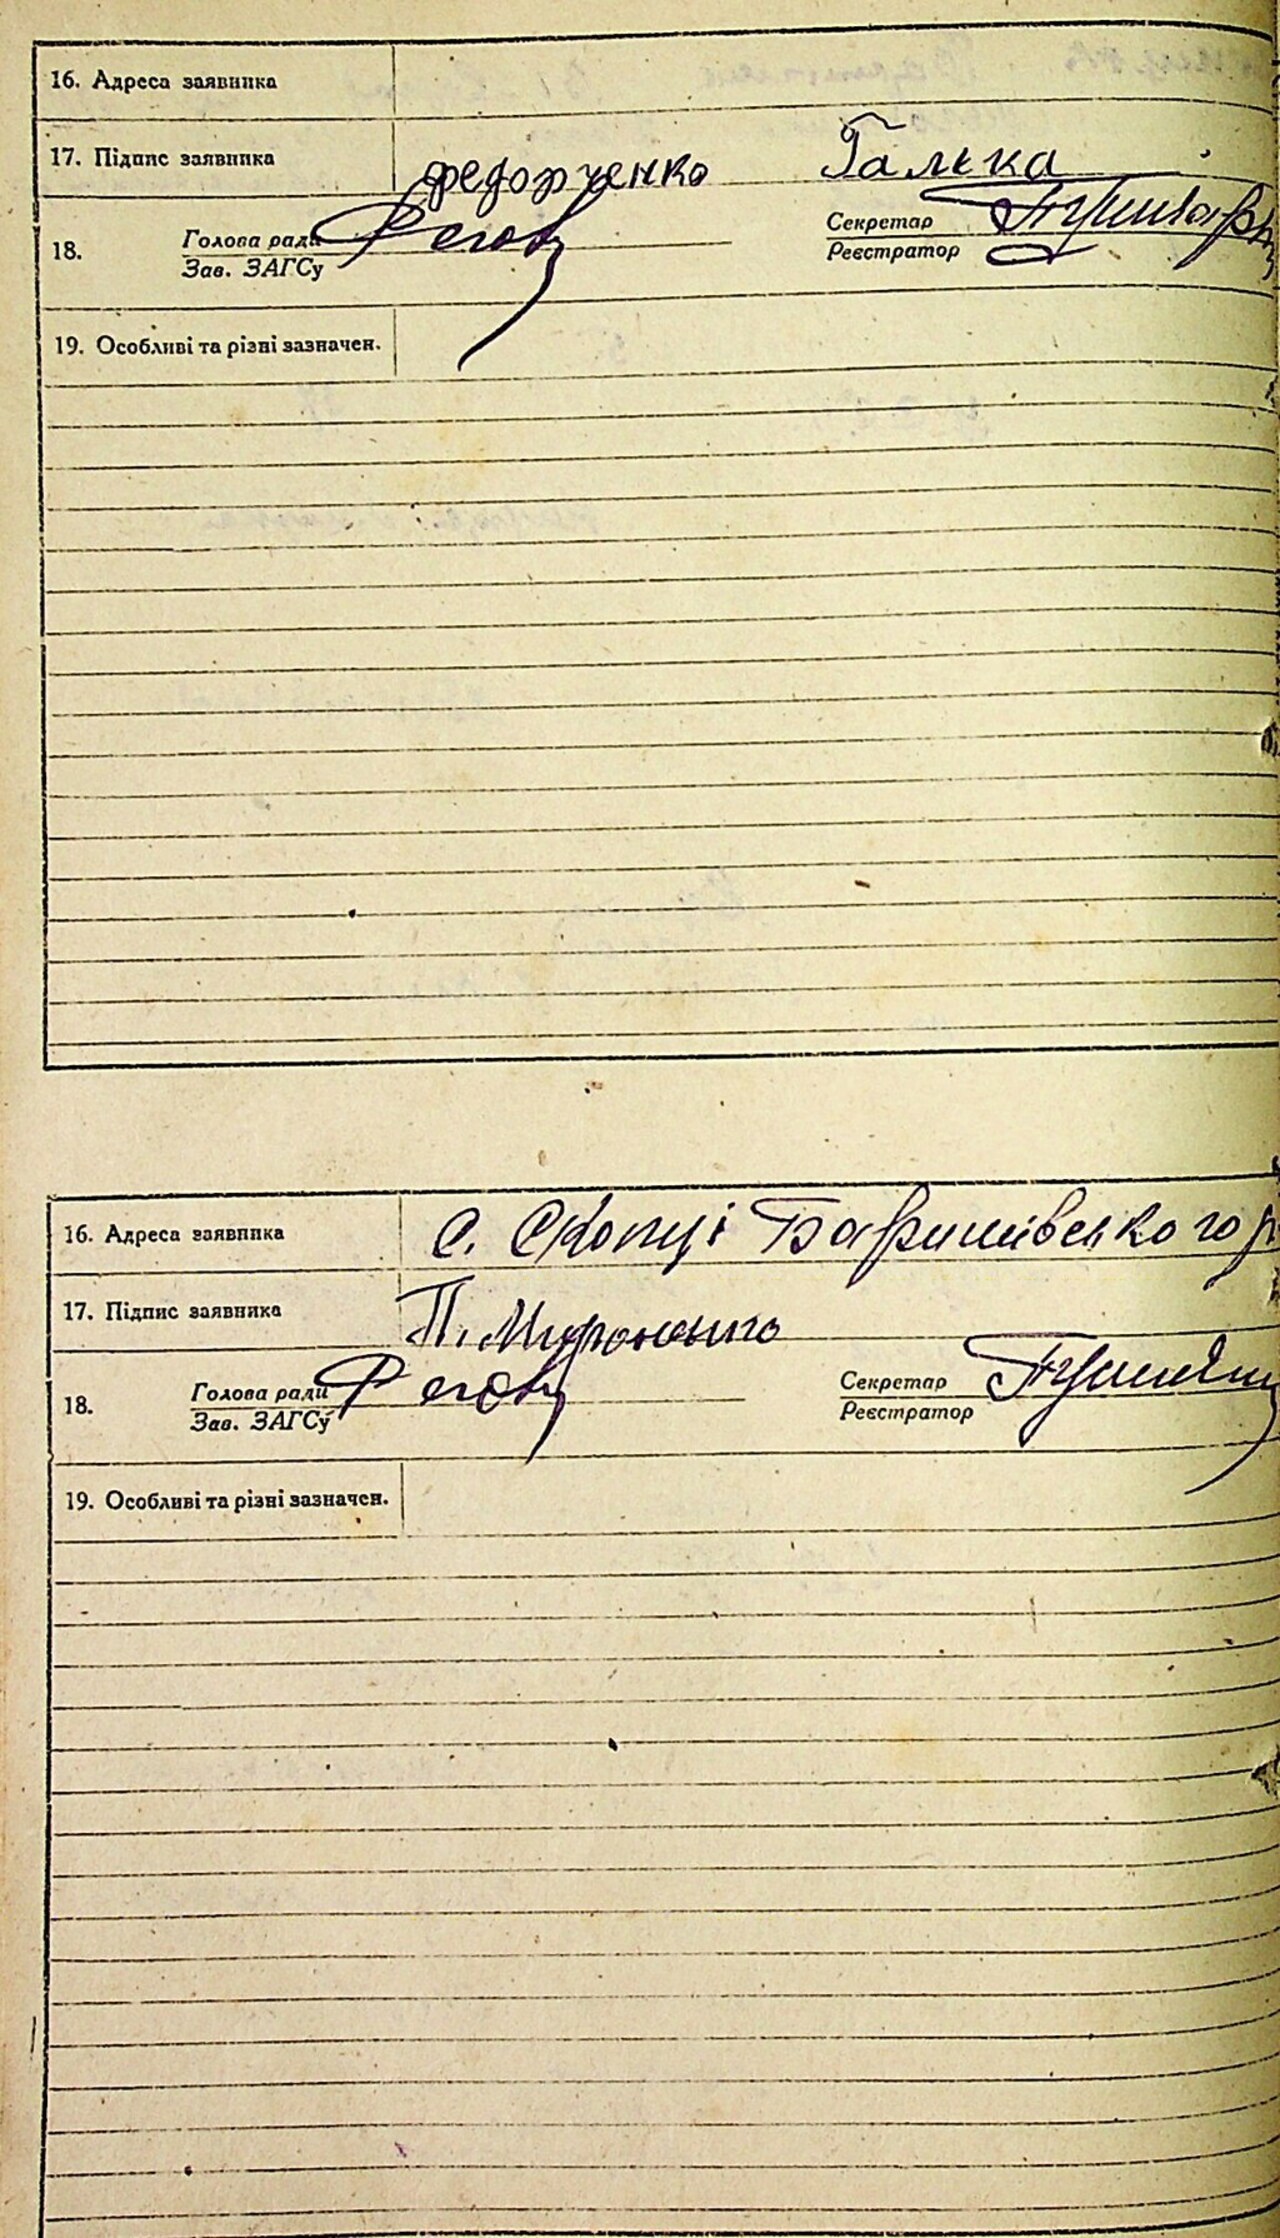 16. Адреса заявника
17. Підпис заявника Федорченко Галька
18. Голова ради Секретар
Зав. ЗАГСу Реєстратор
19. Особливі та різні зазначен.
16. Адреса заявника с. Скопці Баришівського р
17. Підпис заявника П. Мироненко
18. Голова ради Секретар
Зав. ЗАГСу Реєстратор
19. Особливі та різні зазначен.